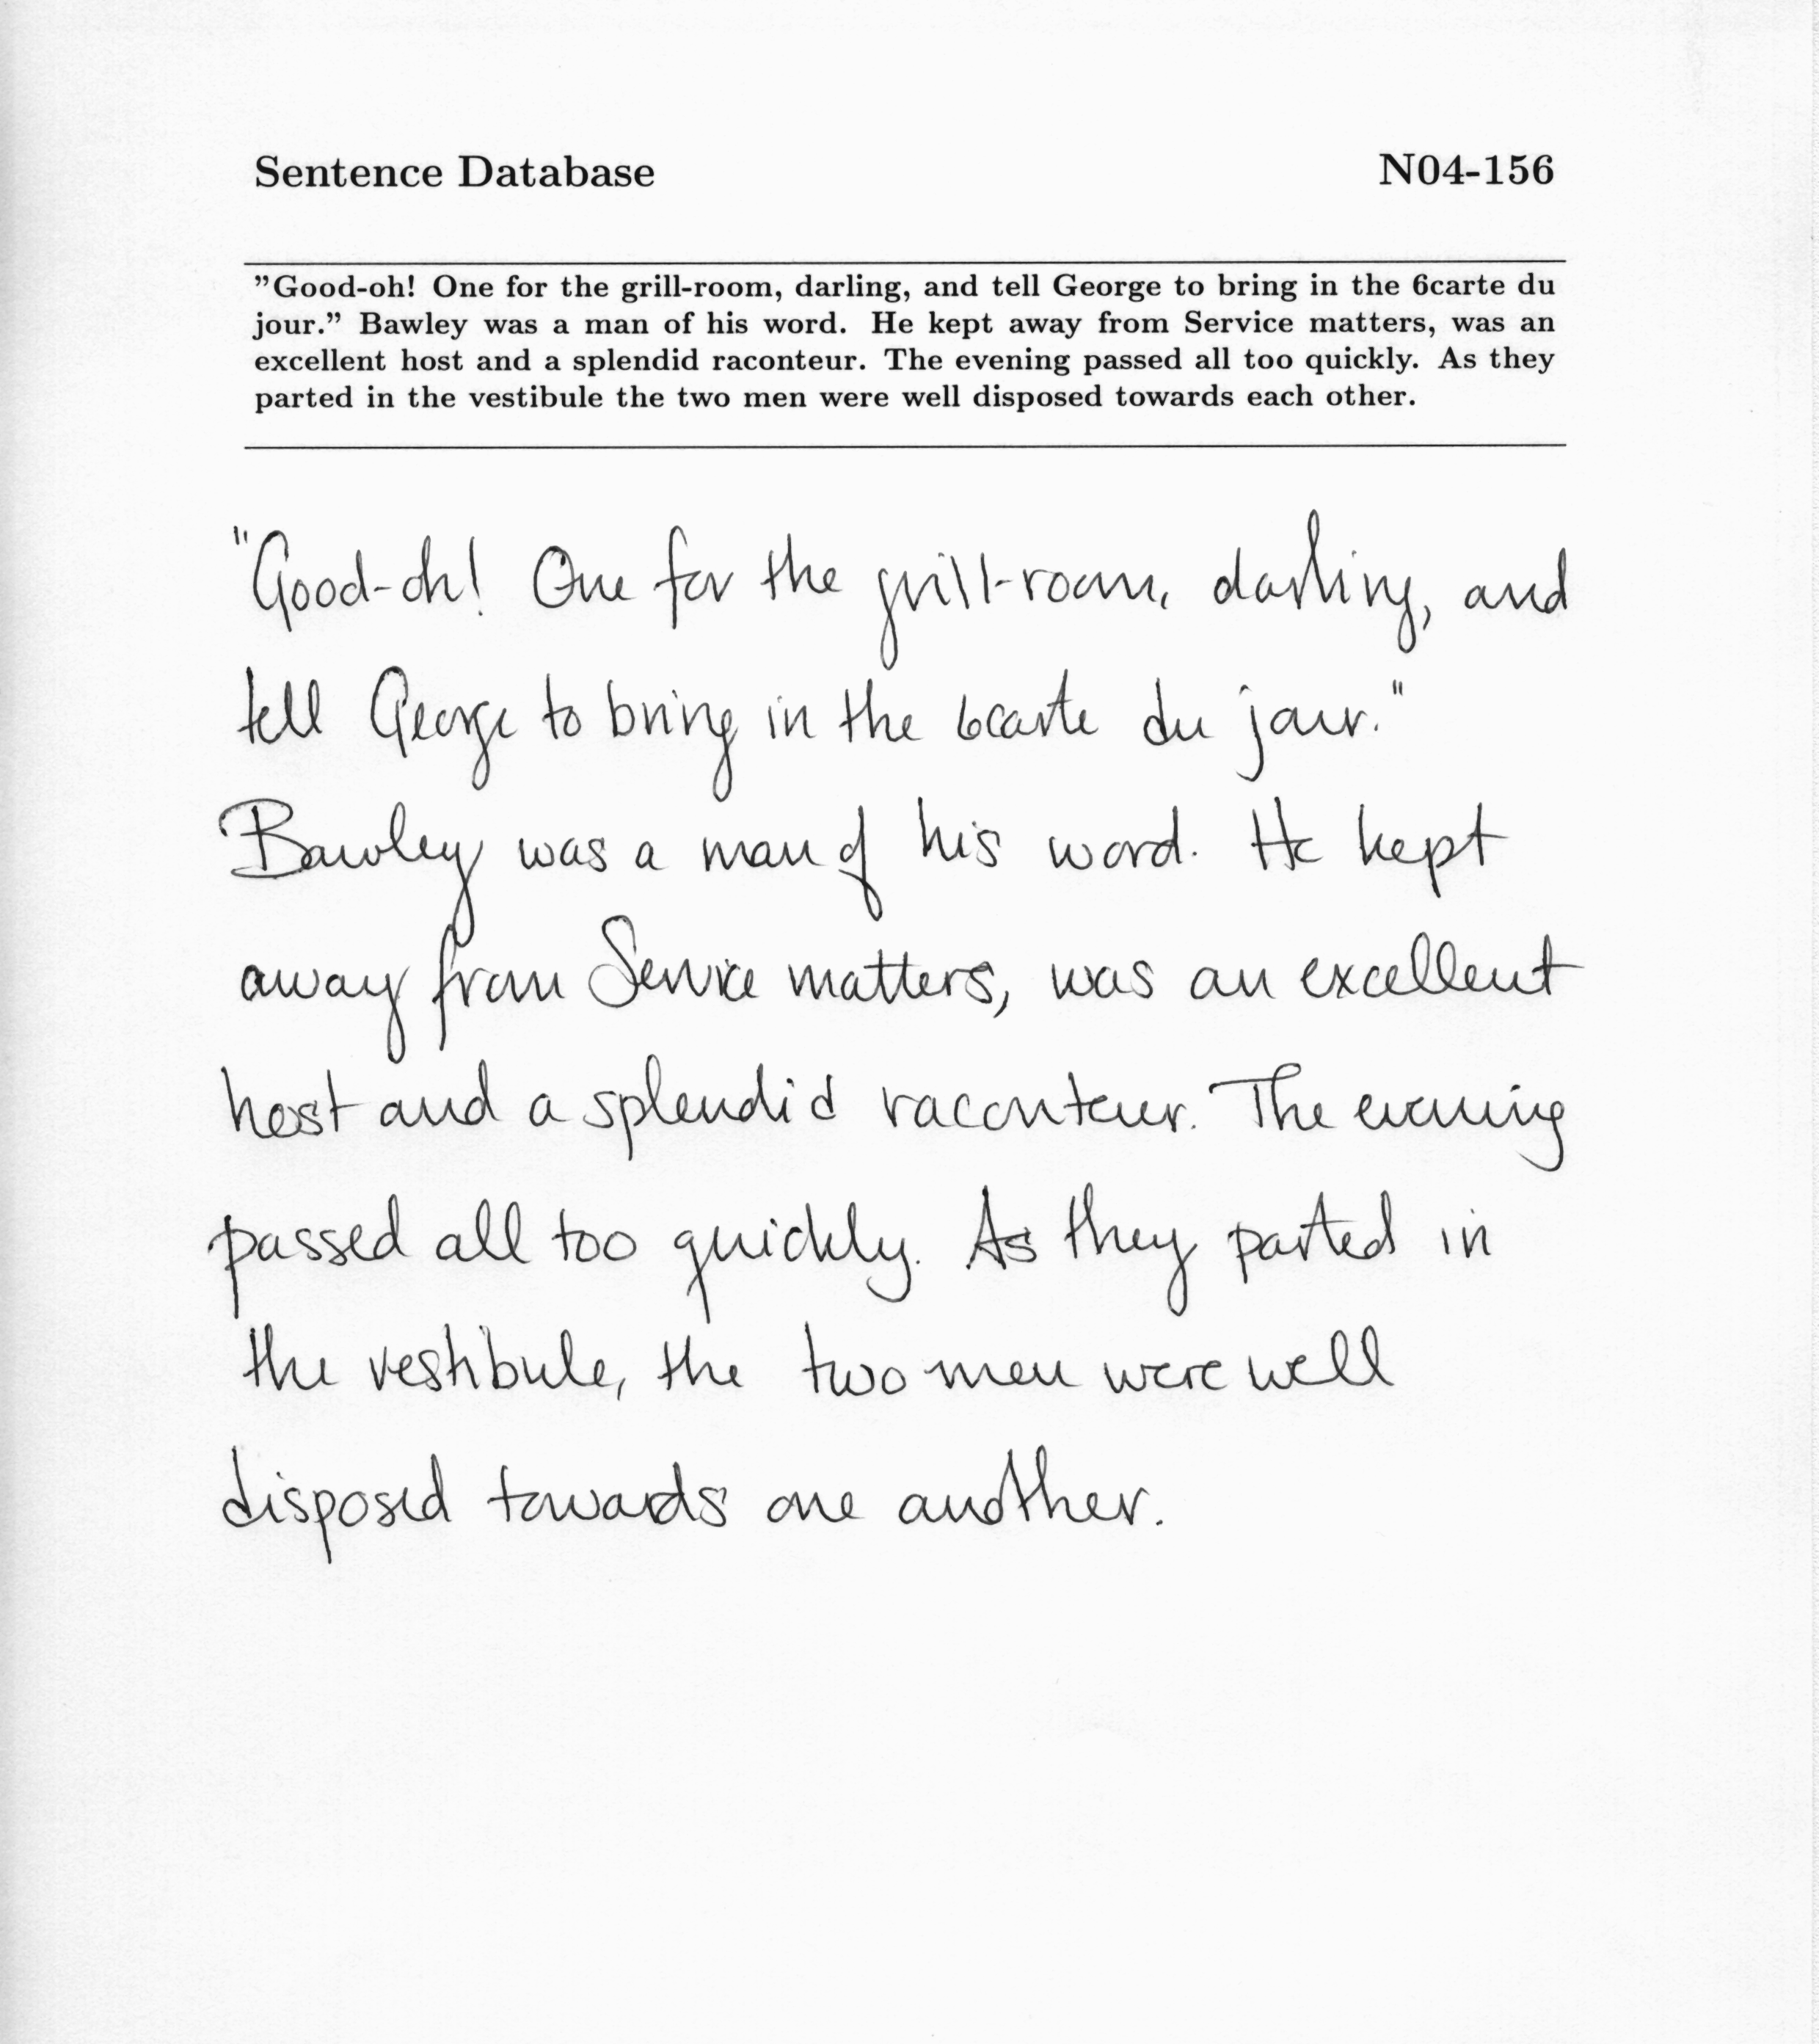 Sentence Database N04-156
”Good-oh! One for the grill-room, darling, and tell George to bring in the 6carte du
jour.” Bawley was a man of his word. He kept away from Service matters, was an
excellent host and a splendid raconteur. The evening passed all too quickly. As they
parted in the vestibule the two men were well disposed towards each other.
"Good-oh! One for the grill-room, darling, and
tell George to bring in the 6carte du jour."
Bawley was a man of his word. He kept
away from Service matters, was an excellent
host and a splendid raconteur. The evening
passed all too quickly. As they parted in
the vestibule, the two men were well
disposed towards one another.